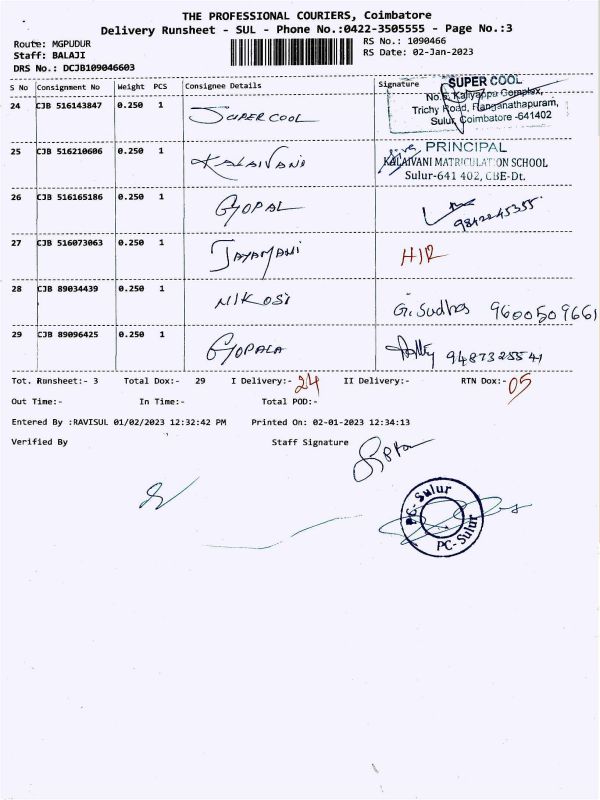 THE PROFESSIONAL COURIERS, Coimbatore
Delivery Runsheet - SUL - Phone No.:0422-3505555 - Page No.:3
Route: MGPUDUR
Staff: BALAJI
DRS No.: DCJB109046603
RS No.: 1090466
RS Date: 02-Jan-2023
S No Consignment No Weight PCS Consignee Details Signature
SUPER COOL
No.6, Kaliyappa Complex,
Trichy Road, Ranganathapuram,
Sulur, Coimbatore -641402
24 CJB 516143847 0.250 1 SUPER COOL
PRINCIPAL
KALAIVANI MATRICULATION SCHOOL
Sulur-641 402, CBE-Dt.
25 CJB 516210606 0.250 1 KALAIVANI
26 CJB 516165186 0.250 1 GOPAL 9842245355
27 CJB 516073063 0.250 1 JAYAMANI H/R
28 CJB 89034439 0.250 1 NIKOSI G. Sudha 9600509661
29 CJB 89096425 0.250 1 GOPALA 9487325541
Tot. Runsheet:- 3 Total Dox:- 29 I Delivery:- 24 II Delivery:- RTN Dox:- 05
Out Time:- In Time:- Total POD:-
Entered By :RAVISUL 01/02/2023 12:32:42 PM Printed On: 02-01-2023 12:34:13
Verified By Staff Signature
PC-Sulur
PC-Sulur